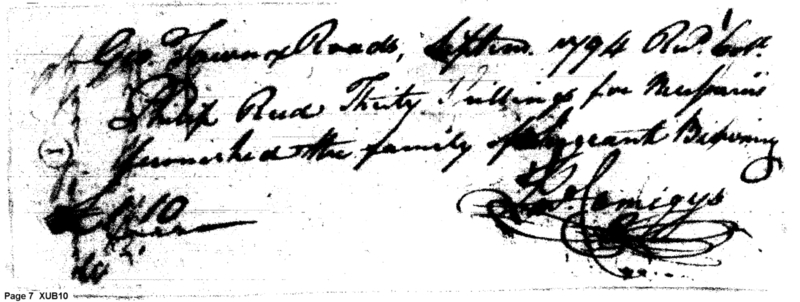 Geo. Town x Roads, Septem. 1794 Recd. Coll.
Philip Reed Thirty Shillings for
furnished the family of Sergeant Browning
£1.10
Page 7 XUB10